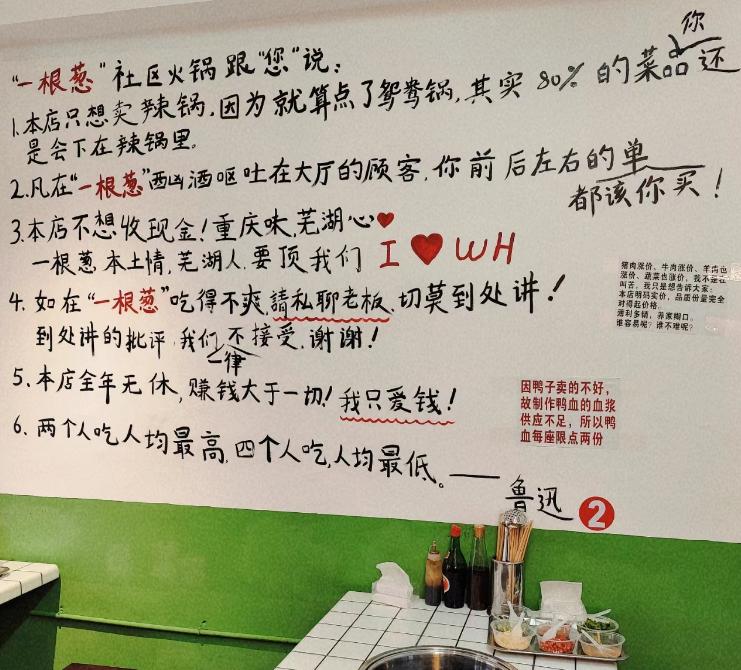 "一根葱"社区火锅跟"您"说：
1.本店只想卖辣锅,因为就算点了鸳鸯锅,其实80%的菜品你还
是会下在辣锅里。
2.凡在"一根葱"酗酒呕吐在大厅的顾客,你前后左右的单
都该你买！
3.本店不想收现金！重庆味,芜湖心
一根葱,本土情,芜湖人,要顶我们 I ❤ WH
4.如在"一根葱"吃得不爽,請私聊老板,切莫到处讲！
到处讲的批评,我们一律不接受,谢谢！
5.本店全年无休,赚钱大于一切！我只爱钱！
6.两个人吃人均最高,四个人吃,人均最低。——鲁迅
2
猪肉涨价、牛肉涨价、羊肉也
涨价、蔬菜也涨价，我不是在
叫苦，我只是想告诉大家：
本店明码实价，品质份量完全
对得起价格。
薄利多销，养家糊口。
谁容易呢？谁不难呢？
因鸭子卖的不好，
故制作鸭血的血浆
供应不足，所以鸭
血每座限点两份